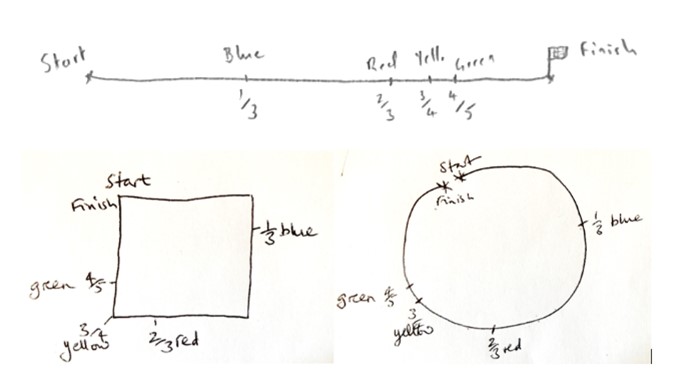 Start
Blue
Red
Yello
Green
Finish
1/3
2/3
3/4
4/5
Start
Finish
1/3 blue
green 4/5
3/4
yellow
2/3 red
Start
Finish
1/3 blue
green 4/5
3
yellow
2/3 red